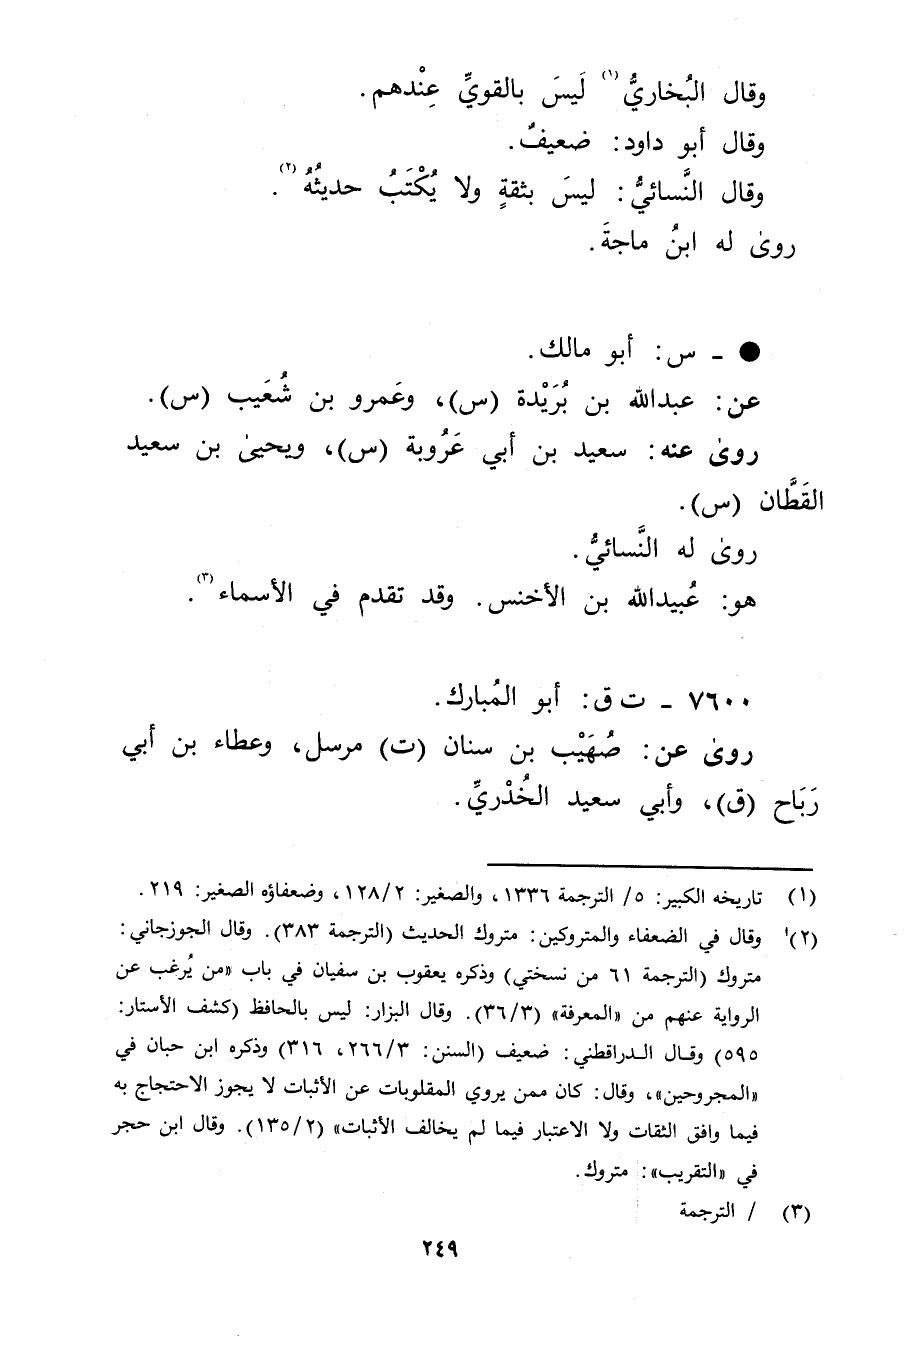 وقال البُخاريُّ (١) لَيسَ بالقويِّ عِنْدهم .
وقال أبو داود : ضعيفٌ .
وقال النَّسائيُّ : ليسَ بثقةٍ ولا يُكْتَبُ حديثُهُ (٢) .
روىٰ له ابنُ ماجةَ .
● ـ س : أبو مالك .
عن : عبدالله بن بُرَيْدة (س) ، وعَمرو بن شُعَيب (س) .
روىٰ عنه : سعيد بن أبي عَرُوبة (س) ، ويحيىٰ بن سعيد
القَطَّان (س) .
روىٰ له النَّسائيُّ .
هو : عُبيدالله بن الأخنس . وقد تقدم في الأسماء (٣) .
٧٦٠٠ ـ ت ق : أبو المُبارك .
روىٰ عن : صُهَيْب بن سنان (ت) مرسل ، وعطاء بن أبي
رَبَاح (ق) ، وأبي سعيد الخُدْريِّ .
(١) تاريخه الكبير : ٥/ الترجمة ١٣٣٦ ، والصغير : ١٢٨/٢ ، وضعفاؤه الصغير : ٢١٩ .
(٢) وقال في الضعفاء والمتروكين : متروك الحديث (الترجمة ٣٨٣) . وقال الجوزجاني :
متروك (الترجمة ٦١ من نسختي) وذكره يعقوب بن سفيان في باب «من يُرغب عن
الرواية عنهم من «المعرفة» (٣٦/٣) . وقال البزار : ليس بالحافظ (كشف الأستار :
٥٩٥) وقال الدراقطني : ضعيف (السنن : ٢٦٦/٣ ، ٣١٦) وذكره ابن حبان في
«المجروحين» ، وقال : كان ممن يروي المقلوبات عن الأثبات لا يجوز الاحتجاج به
فيما وافق الثقات ولا الاعتبار فيما لم يخالف الأثبات» (١٣٥/٢) . وقال ابن حجر
في «التقريب» : متروك .
(٣) / الترجمة
٢٤٩